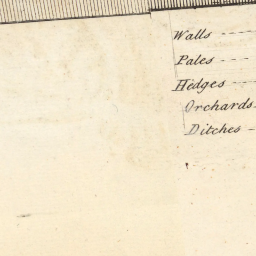 Walls
Pales
Hedges
Orchards
Ditches